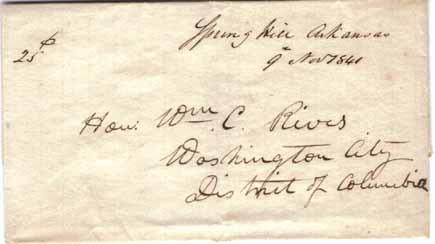 Spring Hill Arkansas
9th Nov 1841
25 P
Hon: Wm. C. Rives
Washington City
District of Columbia